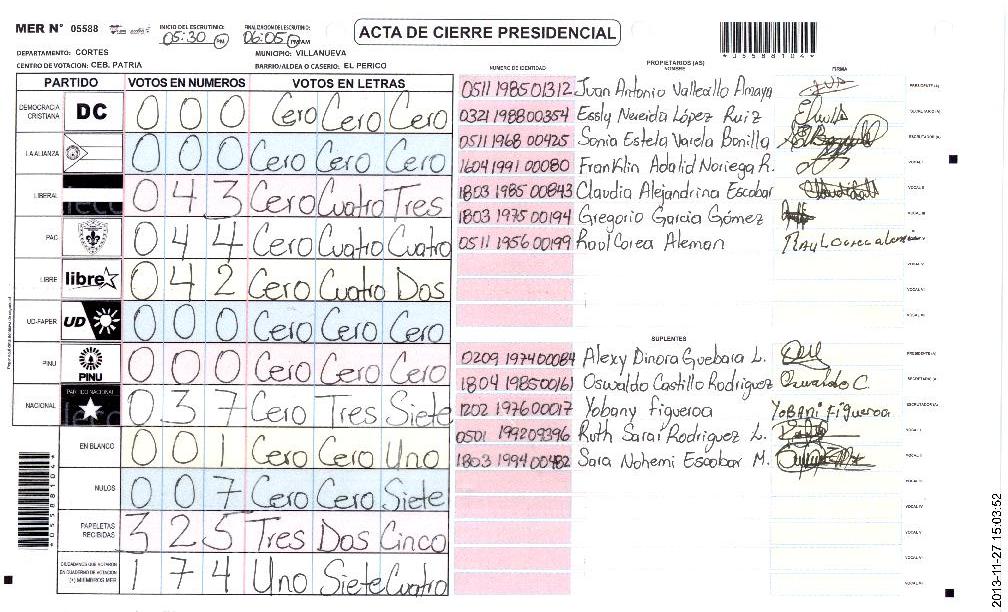 MER N° 05588
INICIO DEL ESCRUTINIO: 05:30 PM
FINALIZACION DEL ESCRUTINIO: 06:05 PM AM
ACTA DE CIERRE PRESIDENCIAL
*05588104*
DEPARTAMENTO: CORTES
MUNICIPIO: VILLANUEVA
CENTRO DE VOTACION: CEB. PATRIA
BARRIO/ALDEA O CASERIO: EL PERICO
PARTIDO VOTOS EN NUMEROS VOTOS EN LETRAS
DEMOCRACIA CRISTIANA DC 0 0 0 Cero Cero Cero
LA ALIANZA 0 0 0 Cero Cero Cero
LIBERAL 0 4 3 Cero Cuatro Tres
PAC 0 4 4 Cero Cuatro Cuatro
LIBRE libre 0 4 2 Cero Cuatro Dos
UD-FAPER UD 0 0 0 Cero Cero Cero
PINU PINU 0 0 0 Cero Cero Cero
NACIONAL PARTIDO NACIONAL 0 3 7 Cero Tres Siete
EN BLANCO 0 0 1 Cero Cero Uno
NULOS 0 0 7 Cero Cero Siete
PAPELETAS RECIBIDAS 3 2 5 Tres Dos Cinco
CIUDADANOS QUE VOTARON EN CUADERNO DE VOTACION (+) MIEMBROS MER 1 7 4 Uno Siete Cuatro
*05588104*
PROPIETARIOS (AS)
NUMERO DE IDENTIDAD NOMBRE FIRMA
0511 1985 01312 Juan Antonio Vallecillo Amaya PRESIDENTE (A)
0321 1988 00354 Essly Nereida López Ruiz SECRETARIO (A)
0511 1968 00425 Sonia Estela Varela Bonilla ESCRUTADOR (A)
1604 1991 00080 Franklin Adalid Noriega R. VOCAL I
1803 1985 00843 Claudia Alejandrina Escobar VOCAL II
1803 1975 00194 Gregorio Garcia Gómez VOCAL III
0511 1956 00199 Raul Corea Aleman
VOCAL V
VOCAL VI
SUPLENTES
0209 1974 00084 Alexy Dinora Guebara L. PRESIDENTE (A)
1804 1985 00161 Oswaldo Castillo Rodriguez Oswaldo C. SECRETARIO (A)
1202 1976 00017 Yobany Figueroa Yobani Figueroa ESCRUTADOR (A)
0501 1992 09396 Ruth Sarai Rodriguez L. VOCAL I
1803 1994 00482 Sara Nohemi Escobar M. VOCAL II
2013-11-27 15:03:52